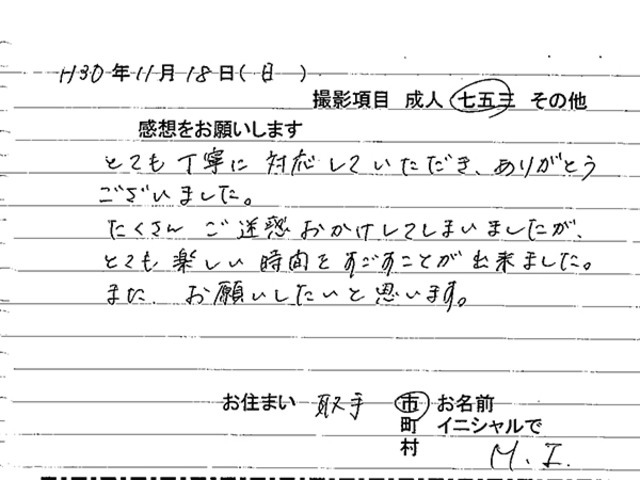 H30年11月18日(日)
撮影項目 成人 七五三 その他
感想をお願いします
とても丁寧に対応していただき、ありがとう
ございました。
たくさんご迷惑おかけしてしまいましたが、
とても楽しい時間をすごすことが出来ました。
また、お願いしたいと思います。
お住まい 取手 市 お名前
町 イニシャルで
村 M.I.